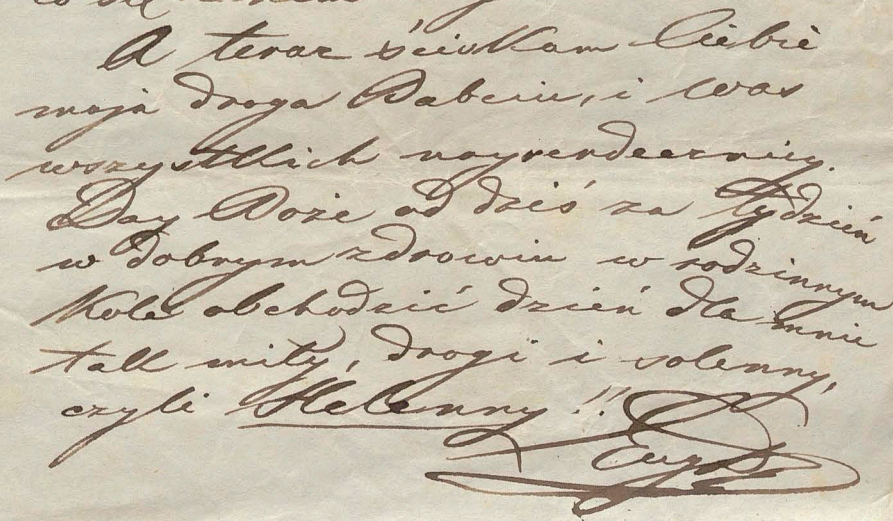 A teraz ściskam Ciebie
moja droga Babciu, i Was
wszystkich nayserdeczniey.
Day Boże od dziś za tydzień
w dobrym zdrowiu w rodzinnym
Kole obchodzić dzień dla mnie
tak miły, drogi i solenny,
czyli Helenny!!